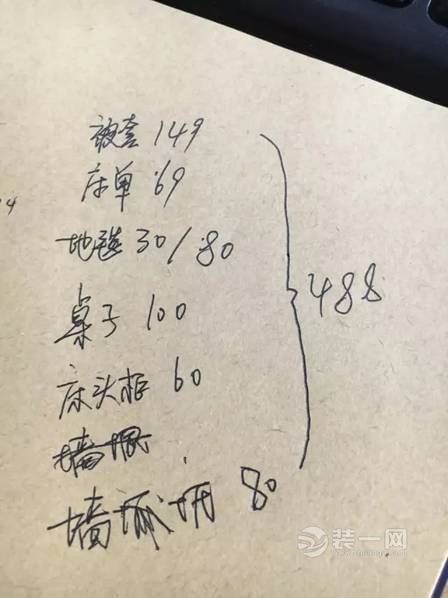 被套 149
床单 69
地毯 30/80
桌子 100
床头柜 60
墙
墙 80
488
装一网